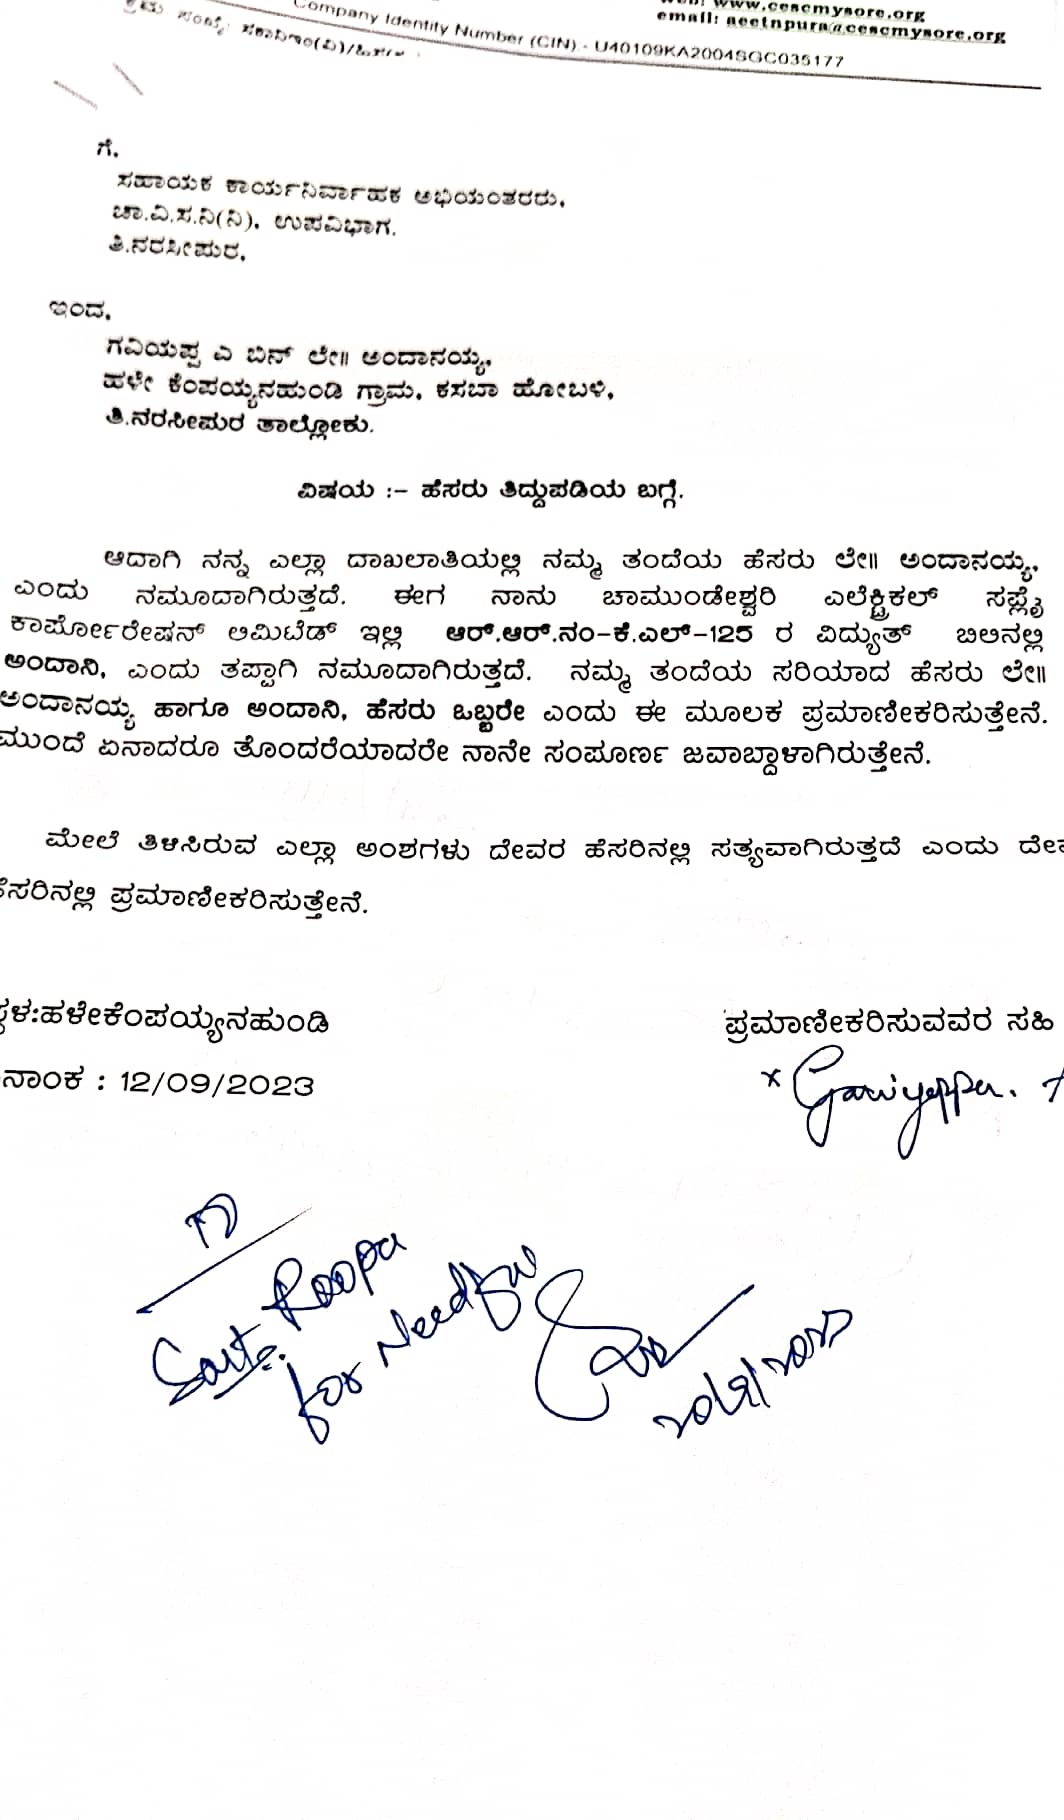 www.cescmysore.org
email: aeetnpura@cescmysore.org
Company Identity Number (CIN) - U40109KA2004SGC035177
ಗೆ,
ಸಹಾಯಕ ಕಾರ್ಯನಿರ್ವಾಹಕ ಅಭಿಯಂತರರು,
ಚಾ.ವಿ.ಸ.ನಿ(ನಿ), ಉಪವಿಭಾಗ.
ತಿ.ನರಸೀಪುರ,
ಇಂದ,
ಗವಿಯಪ್ಪ ಎ ಬಿನ್ ಲೇ॥ ಅಂದಾನಯ್ಯ,
ಹಳೇ ಕೆಂಪಯ್ಯನಹುಂಡಿ ಗ್ರಾಮ, ಕಸಬಾ ಹೋಬಳಿ,
ತಿ.ನರಸೀಪುರ ತಾಲ್ಲೋಕು.
ವಿಷಯ :– ಹೆಸರು ತಿದ್ದುಪಡಿಯ ಬಗ್ಗೆ.
ಆದಾಗಿ ನನ್ನ ಎಲ್ಲಾ ದಾಖಲಾತಿಯಲ್ಲಿ ನಮ್ಮ ತಂದೆಯ ಹೆಸರು ಲೇ॥ ಅಂದಾನಯ್ಯ,
ಎಂದು ನಮೂದಾಗಿರುತ್ತದೆ. ಈಗ ನಾನು ಚಾಮುಂಡೇಶ್ವರಿ ಎಲೆಕ್ಟ್ರಿಕಲ್ ಸಪ್ಲೈ
ಕಾರ್ಪೋರೇಷನ್ ಲಿಮಿಟೆಡ್ ಇಲ್ಲಿ ಆರ್.ಆರ್.ನಂ-ಕೆ.ಎಲ್-125 ರ ವಿದ್ಯುತ್ ಬಿಲಿನಲ್ಲಿ
ಅಂದಾನಿ, ಎಂದು ತಪ್ಪಾಗಿ ನಮೂದಾಗಿರುತ್ತದೆ. ನಮ್ಮ ತಂದೆಯ ಸರಿಯಾದ ಹೆಸರು ಲೇ॥
ಅಂದಾನಯ್ಯ ಹಾಗೂ ಅಂದಾನಿ, ಹೆಸರು ಒಬ್ಬರೇ ಎಂದು ಈ ಮೂಲಕ ಪ್ರಮಾಣೀಕರಿಸುತ್ತೇನೆ.
ಮುಂದೆ ಏನಾದರೂ ತೊಂದರೆಯಾದರೇ ನಾನೇ ಸಂಪೂರ್ಣ ಜವಾಬ್ದಾಳಾಗಿರುತ್ತೇನೆ.
ಮೇಲೆ ತಿಳಿಸಿರುವ ಎಲ್ಲಾ ಅಂಶಗಳು ದೇವರ ಹೆಸರಿನಲ್ಲಿ ಸತ್ಯವಾಗಿರುತ್ತದೆ ಎಂದು
ಹೆಸರಿನಲ್ಲಿ ಪ್ರಮಾಣೀಕರಿಸುತ್ತೇನೆ.
ಸ್ಥಳ:ಹಳೇಕೆಂಪಯ್ಯನಹುಂಡಿ
ಪ್ರಮಾಣೀಕರಿಸುವವರ ಸಹಿ
ನಾಂಕ : 12/09/2023
x Gaviyappa. A
Roopa
for Needful